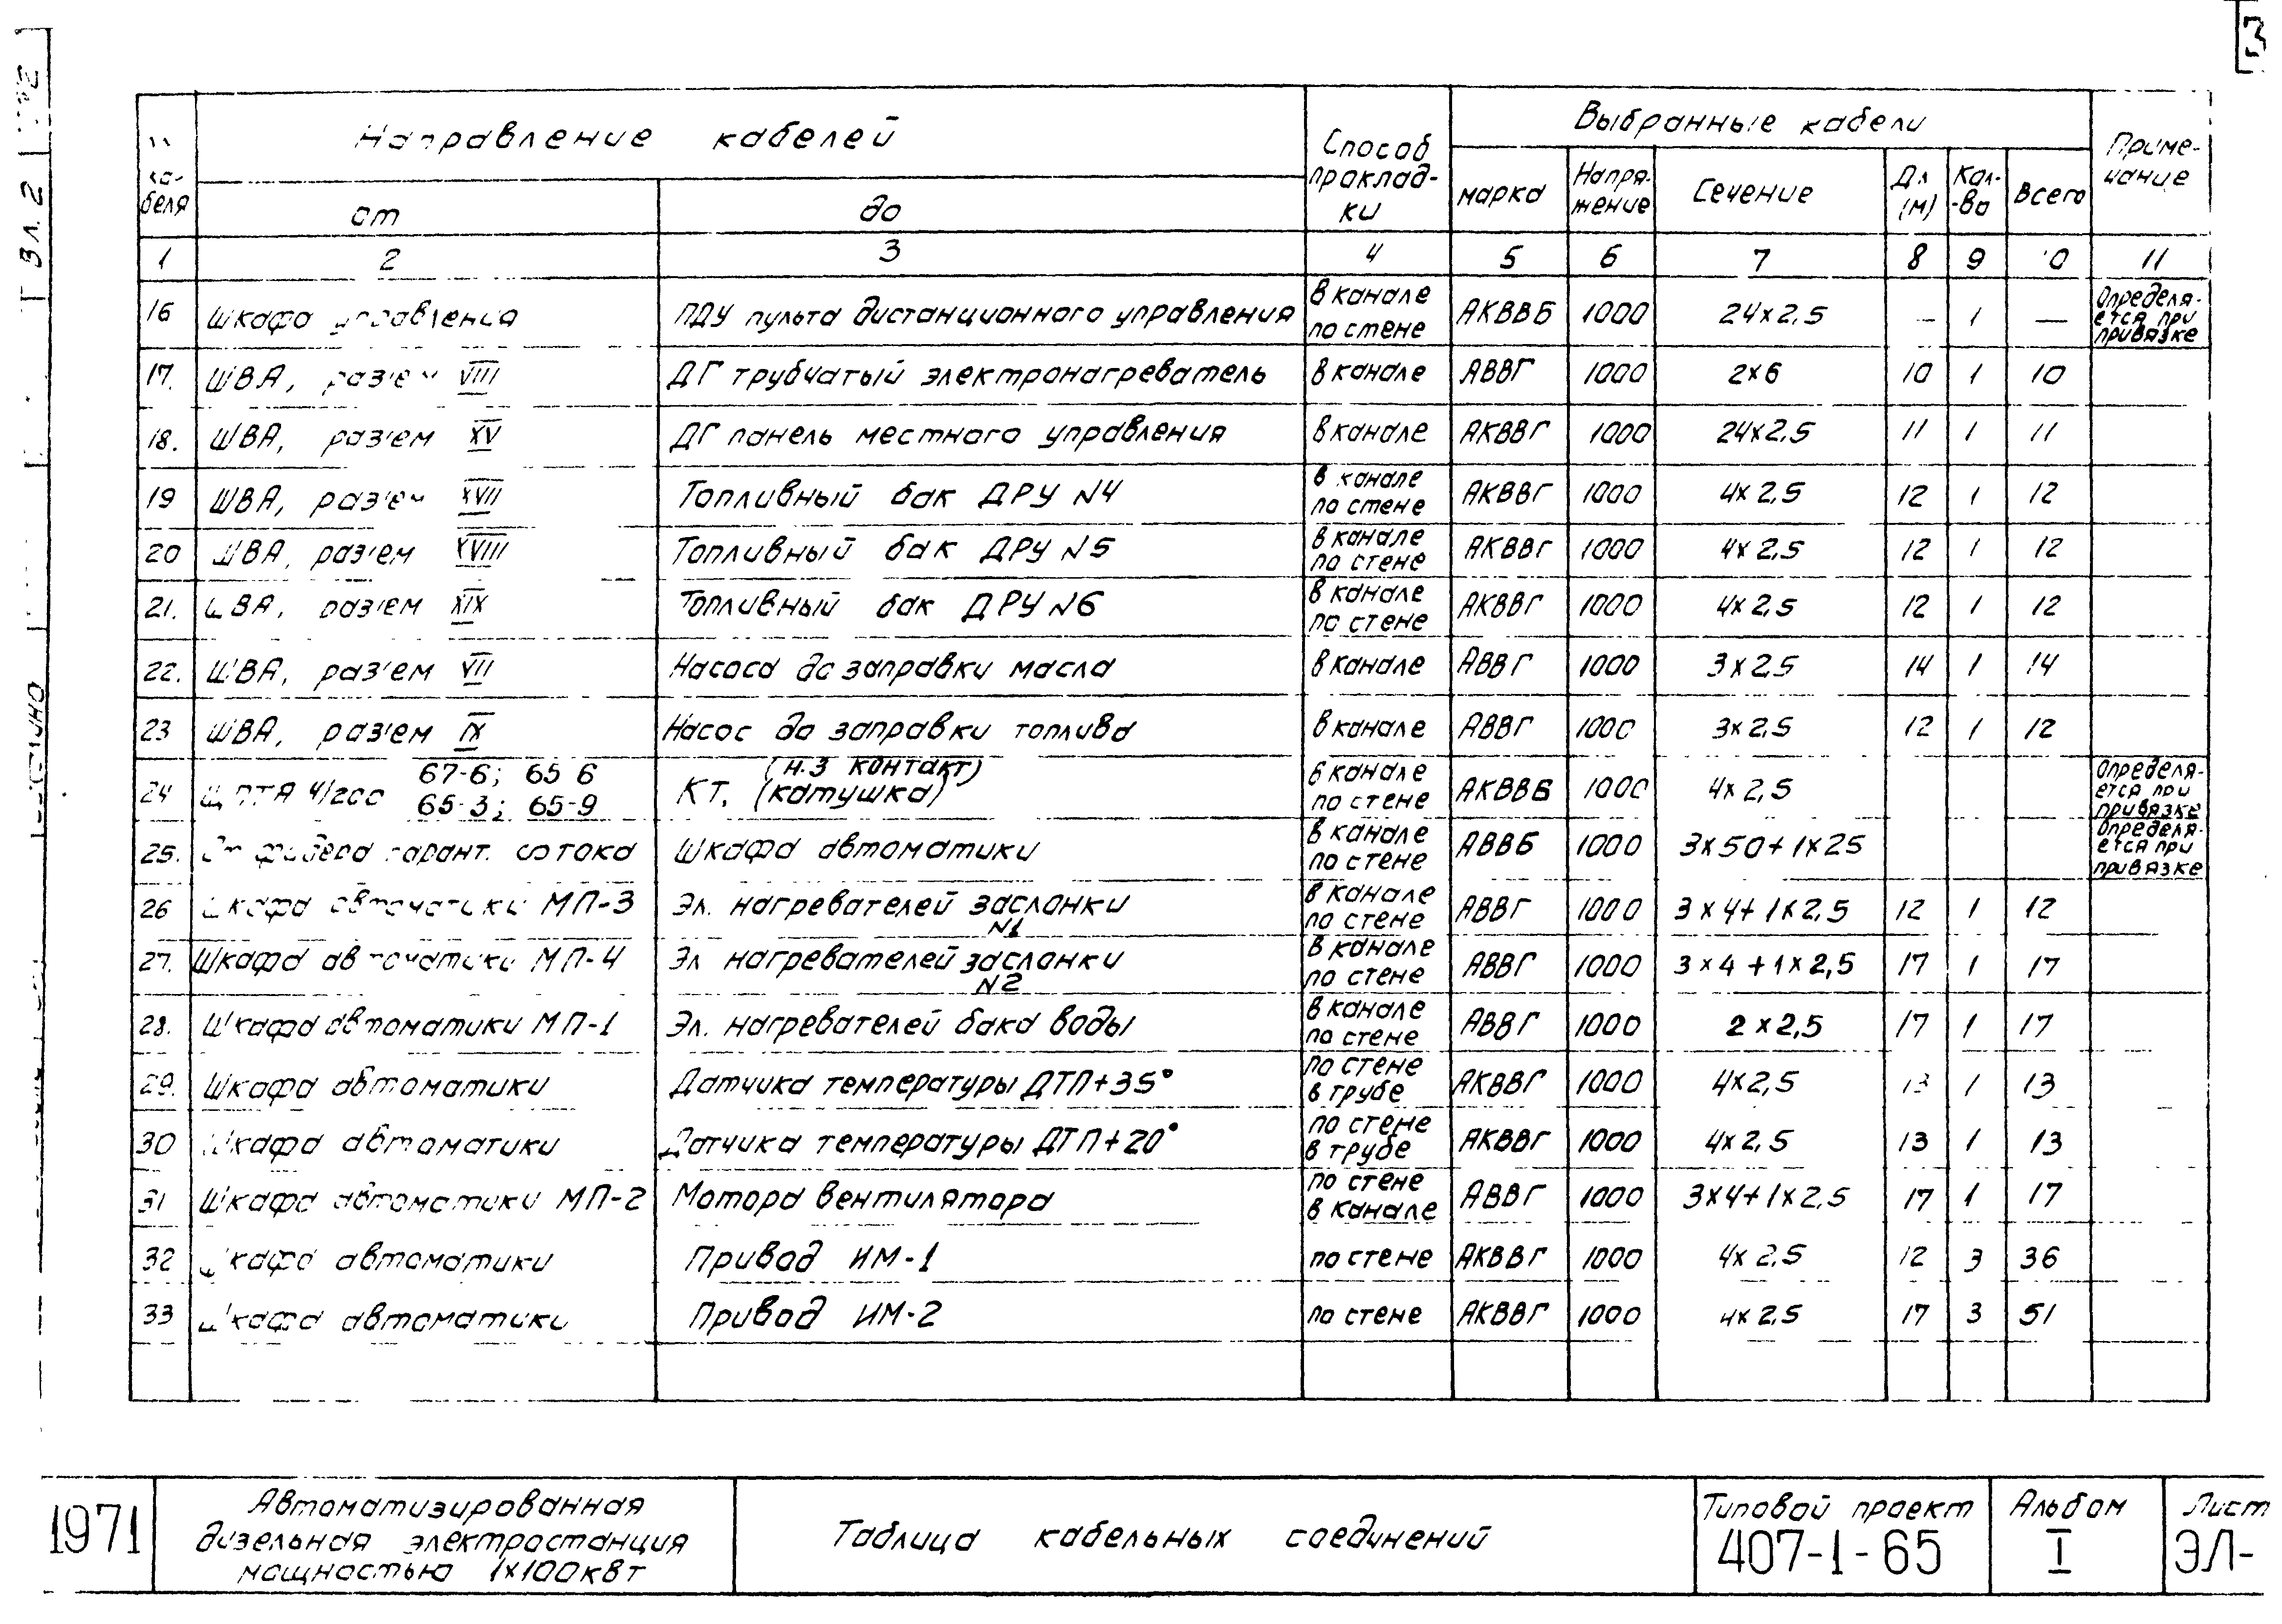 3
Вл. 2
Направление кабелей
Способ проклад-ки
Выбранные кабели
Приме-чание
беля
от
до
марка
Напря-жение
Сечение
Дл (м)
Кол-во
Всего
1 2 3 4 5 6 7 8 9 10 11
16 Шкафа управления ПДУ пульта дистанционного управления в канале по стене АКВВБ 1000 24x2,5 — 1 — Определя-ется при привязке
17. ШВА, раз'ем VIII ДГ трубчатый электронагреватель в канале АВВГ 1000 2x6 10 1 10
18. ШВА, раз'ем XV ДГ панель местного управления в канале АКВВГ 1000 24x2,5 11 1 11
19 ШВА, раз'ем XVII Топливный бак ДРУ N4 в канале по стене АКВВГ 1000 4x2,5 12 1 12
20 ШВА, раз'ем XVIII Топливный бак ДРУ N5 в канале по стене АКВВГ 1000 4x2,5 12 1 12
21. ШВА, раз'ем XIX Топливный бак ДРУ N6 в канале по стене АКВВГ 1000 4x2,5 12 1 12
22. ШВА, раз'ем VII Насоса дозаправки масла в канале АВВГ 1000 3x2,5 14 1 14
23 ШВА, раз'ем IX Насос дозаправки топлива в канале АВВГ 1000 3x2,5 12 1 12
24 4/200 67-6; 65 6 65-3; 65-9 КТ. (н.з контакт) (катушка) в канале по стене АКВВБ 1000 4x2,5 Определя-ется при привязке
25. От фидера гарант. тока Шкафа автоматики в канале по стене АВВБ 1000 3x50+1x25 Определя-ется при привязке
26 Шкафа автоматики МП-3 Эл. нагревателей заслонки N1 в канале по стене АВВГ 1000 3x4+1x2,5 12 1 12
27. Шкафа автоматики МП-4 Эл нагревателей заслонки N2 в канале по стене АВВГ 1000 3x4+1x2,5 17 1 17
28. Шкафа автоматики МП-1 Эл. нагревателей бака воды в канале по стене АВВГ 1000 2x2,5 17 1 17
29. Шкафа автоматики Датчика температуры ДТП+35° по стене в трубе АКВВГ 1000 4x2,5 13 1 13
30 Шкафа автоматики Датчика температуры ДТП+20° по стене в трубе АКВВГ 1000 4x2,5 13 1 13
31 Шкафа автоматики МП-2 Мотора вентилятора по стене в канале АВВГ 1000 3x4+1x2,5 17 1 17
32 Шкафа автоматики Привод ИМ-1 по стене АКВВГ 1000 4x2,5 12 3 36
33 Шкафа автоматики Привод ИМ-2 по стене АКВВГ 1000 4x2,5 17 3 51
1971
Автоматизированная
дизельная электростанция
мощностью 1x100квт
Таблица кабельных соединений
Типовой проект
407-1-65
Альбом
I
Лист
ЭЛ-